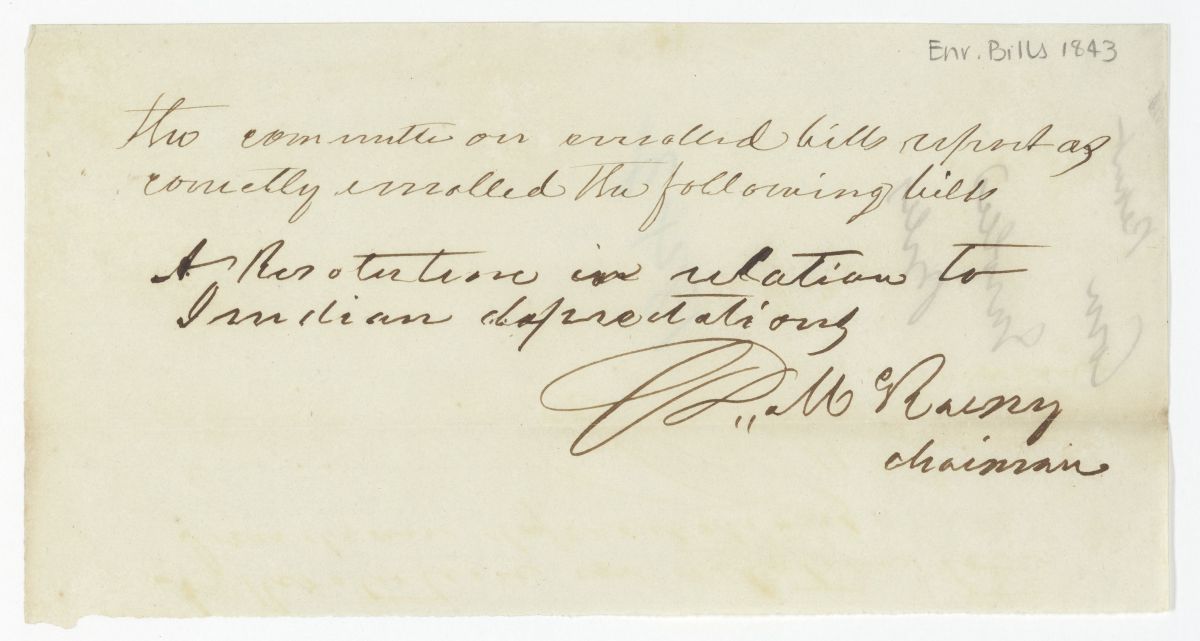 Enr. Bills 1843
The committe on enrolled bills report as
correctly enrolled the following bills
A Resolution in relation to
Indian depredations
McRaeny
chairman